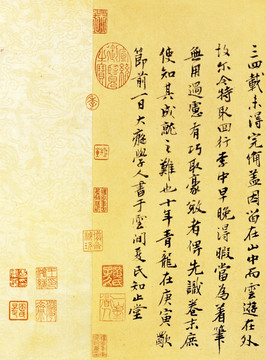 三四載未得完備盖因留在山中而雲遊在外
故尔今特取回行李中早晚得暇當為著筆
無用過慮有巧取豪敓者俾先識卷末庶
使知其成就之難也十年青龍在庚寅歜
節前一日大癡學人書于雲間夏氏知止堂